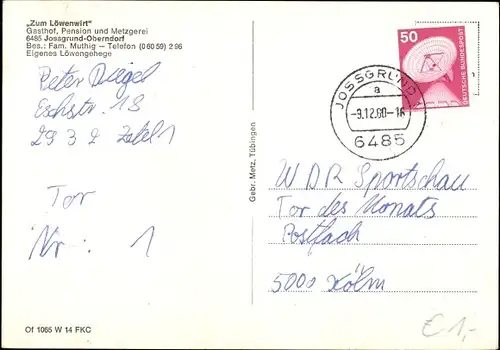 „Zum Löwenwirt"
Gasthof, Pension und Metzgerei
6485 Jossgrund-Oberndorf
Bes.: Fam. Muthig – Telefon (06059) 2 96
Eigenes Löwengehege
Peter Diegel
Eschstr. 18
2932 Zetel 1
Tor
Nr: 1
Of 1065 W 14 FKC
Gebr. Metz, Tübingen
50
DEUTSCHE BUNDESPOST
JOSSGRUND 1
a
-9.12.80-16
6485
WDR Sportschau
Tor des Monats
Postfach
5000 Köln
€ 1,-